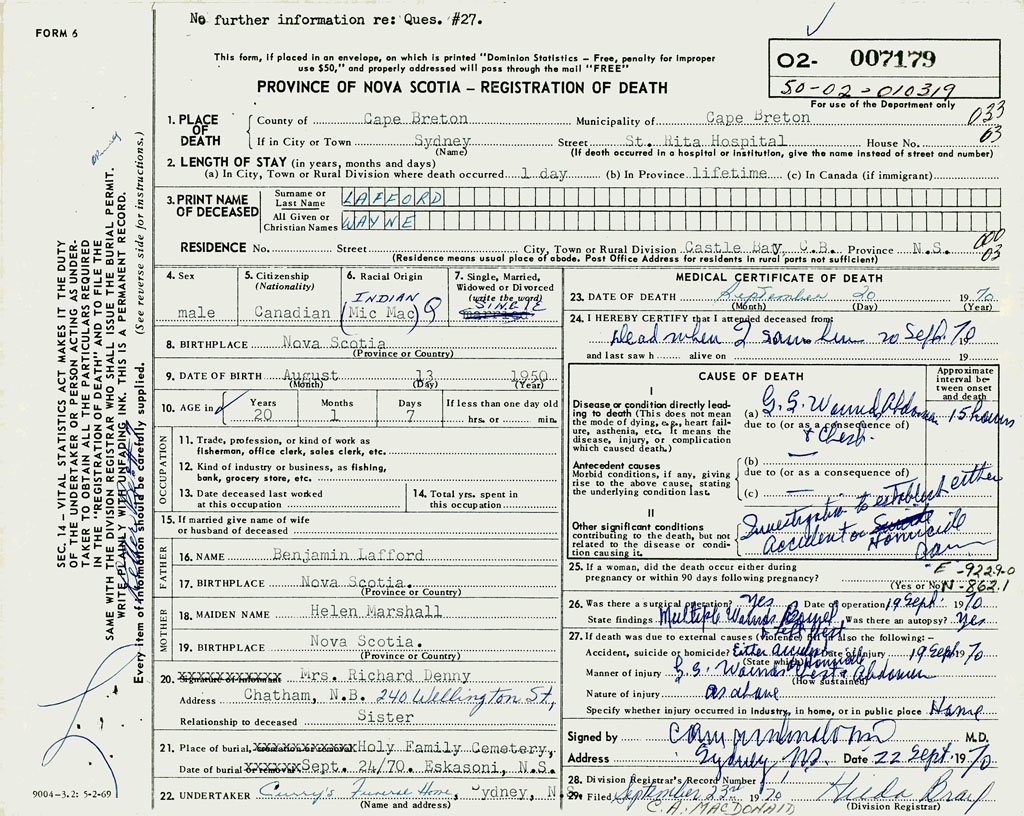 No further information re: Ques. #27.
FORM 6
This form, if placed in an envelope, on which is printed "Dominion Statistics – Free, penalty for improper
use $50," and properly addressed will pass through the mail "FREE"
PROVINCE OF NOVA SCOTIA – REGISTRATION OF DEATH
02- 007179
50-02-010319
For use of the Department only
033
03
1. PLACE OF DEATH
County of Cape Breton Municipality of Cape Breton
If in City or Town Sydney Street St. Rita Hospital House No.
(Name) (If death occurred in a hospital or institution, give the name instead of street and number)
2. LENGTH OF STAY (in years, months and days)
(a) In City, Town or Rural Division where death occurred 1 day (b) In Province lifetime (c) In Canada (if immigrant)
3. PRINT NAME OF DECEASED
Surname or Last Name LAFFORD
All Given or Christian Names WAYNE
000
03
RESIDENCE No. Street City, Town or Rural Division Castle Bay, C.B. Province N.S.
(Residence means usual place of abode. Post Office Address for residents in rural parts not sufficient)
4. Sex
male
5. Citizenship
(Nationality)
Canadian
6. Racial Origin
INDIAN
(Mic Mac)
7. Single, Married,
Widowed or Divorced
(write the word)
SINGLE
married
8. BIRTHPLACE Nova Scotia
(Province or Country)
9. DATE OF BIRTH August 13 1950
(Month) (Day) (Year)
10. AGE in Years Months Days If less than one day old
20 1 7 hrs. or min.
OCCUPATION
11. Trade, profession, or kind of work as
fisherman, office clerk, sales clerk, etc.
12. Kind of industry or business, as fishing,
bank, grocery store, etc.
13. Date deceased last worked
at this occupation
14. Total yrs. spent in
this occupation
15. If married give name of wife
or husband of deceased
FATHER
16. NAME Benjamin Lafford
17. BIRTHPLACE Nova Scotia.
(Province or Country)
MOTHER
18. MAIDEN NAME Helen Marshall
19. BIRTHPLACE Nova Scotia.
(Province or Country)
20. Signature of Informant Mrs. Richard Denny
Address Chatham, N.B. 240 Wellington St.,
Relationship to deceased Sister
21. Place of burial, cremation or removal Holy Family Cemetery,
Date of burial or removal Sept. 24/70. Eskasoni, N.S.
22. UNDERTAKER Curry's Funeral Home, Sydney, N.S.
(Name and address)
MEDICAL CERTIFICATE OF DEATH
23. DATE OF DEATH September 20 1970
(Month) (Day) (Year)
24. I HEREBY CERTIFY that I attended deceased from:
Dead when I saw him 20 Sept. 70 19
and last saw h alive on 19
CAUSE OF DEATH
Approximate
interval between onset
and death
I
Disease or condition directly leading to death (This does not mean
the mode of dying, e.g., heart failure, asthenia, etc. It means the
disease, injury, or complication
which caused death.)
(a) G.S. Wound Abdomen 15 hours
due to (or as a consequence of)
& Chest.
Antecedent causes
Morbid conditions, if any, giving
rise to the above cause, stating
the underlying condition last.
(b) —
due to (or as a consequence of)
(c) —
II
Other significant conditions
contributing to the death, but not
related to the disease or condition causing it.
Investigation to establish either
accident or Suicide
Homicide
25. If a woman, did the death occur either during
pregnancy or within 90 days following pregnancy?
(Yes or No)
E-922.0
N-862.1
26. Was there a surgical operation? Yes Date of operation 19 Sept. 1970
State findings Multiple Wounds Bowel Was there an autopsy? Yes
& left
27. If death was due to external causes (violence) fill in also the following: –
Accident, suicide or homicide? Either accident Date of injury 19 Sept. 1970
(State which) or Homicide
Manner of injury G.S. Wounds Chest & Abdomen
(How sustained)
Nature of injury as above
Specify whether injury occurred in Industry, in home, or in public place Home
Signed by M.D.
Address Sydney NS. Date 22 Sept. 1970
28. Division Registrar's Record Number
29. Filed September 23rd 1970
(Division Registrar)
C. A. MACDONALD
SEC. 14 – VITAL STATISTICS ACT MAKES IT THE DUTY
OF THE UNDERTAKER OR PERSON ACTING AS UNDERTAKER
TO OBTAIN ALL THE PARTICULARS REQUIRED
IN THE "REGISTRATION OF DEATH" AND TO FILE THE
SAME WITH THE DIVISION REGISTRAR WHO SHALL ISSUE THE BURIAL PERMIT.
WRITE PLAINLY WITH UNFADING INK. THIS IS A PERMANENT RECORD.
Every item of information should be carefully supplied. (See reverse side for instructions.)
9004-3.2: 5-2-69